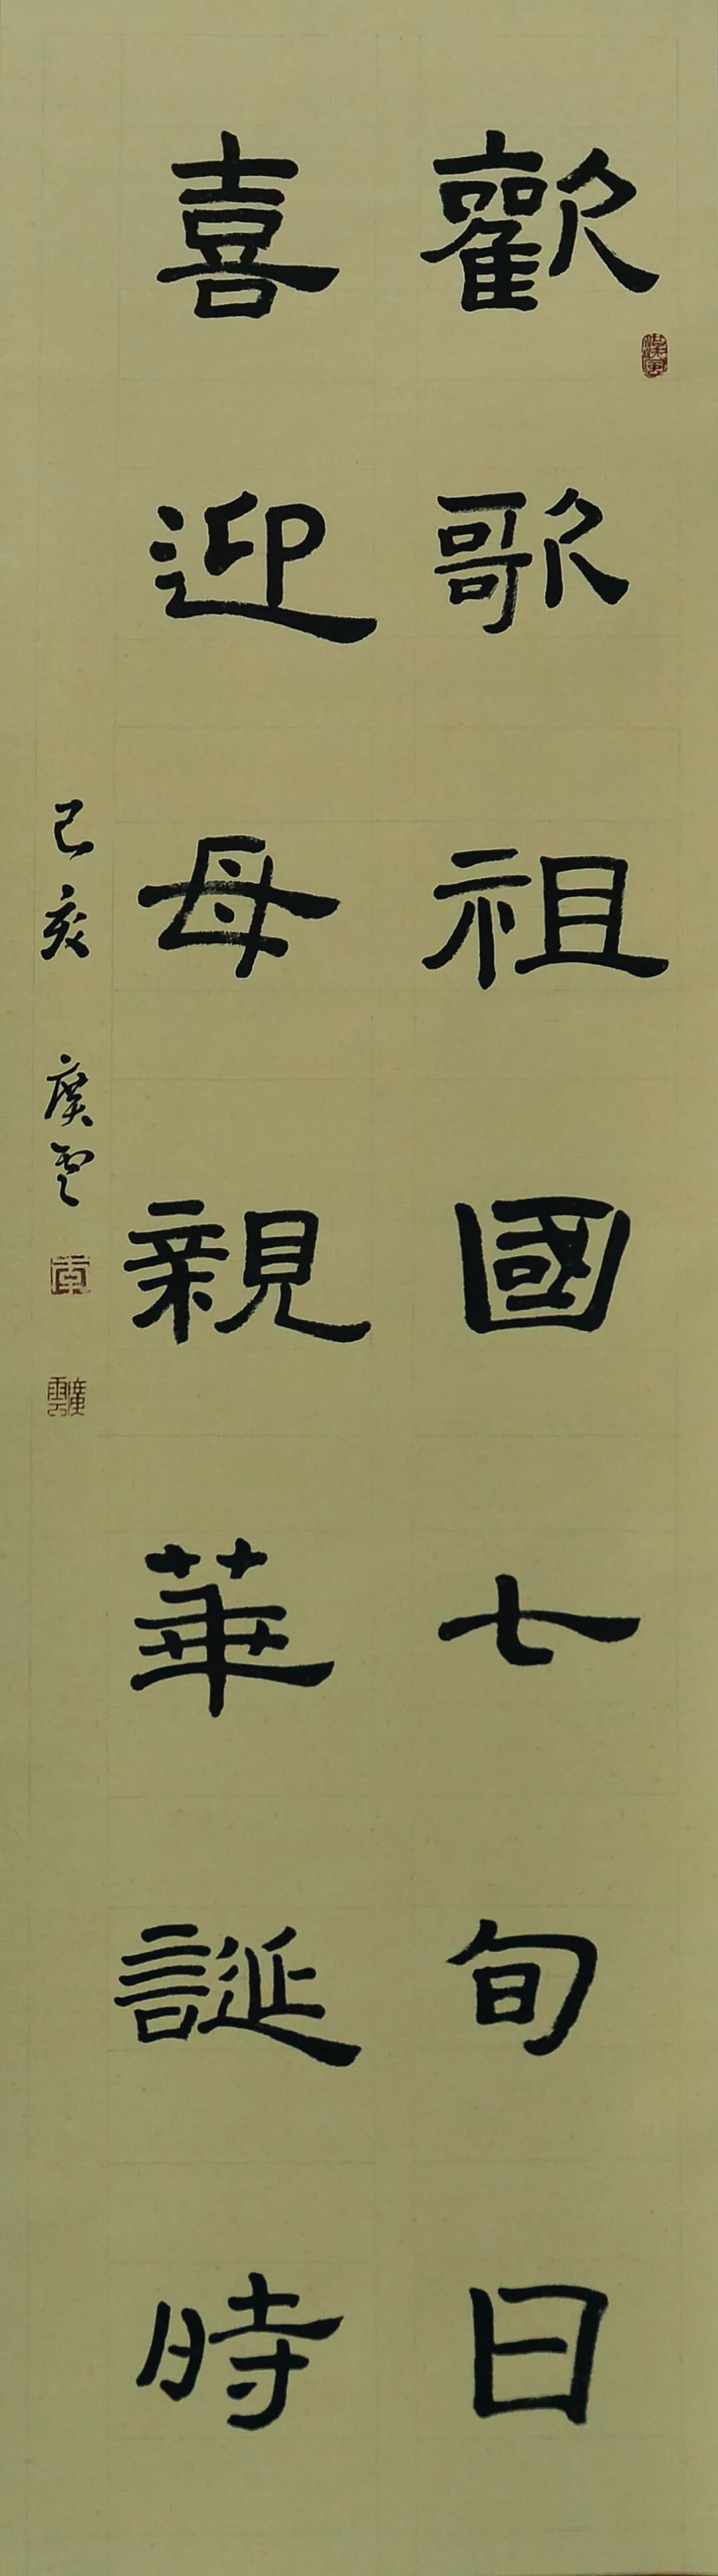 歡歌祖國七旬日
喜迎母親華誕時
己亥 廣雲
廣雲